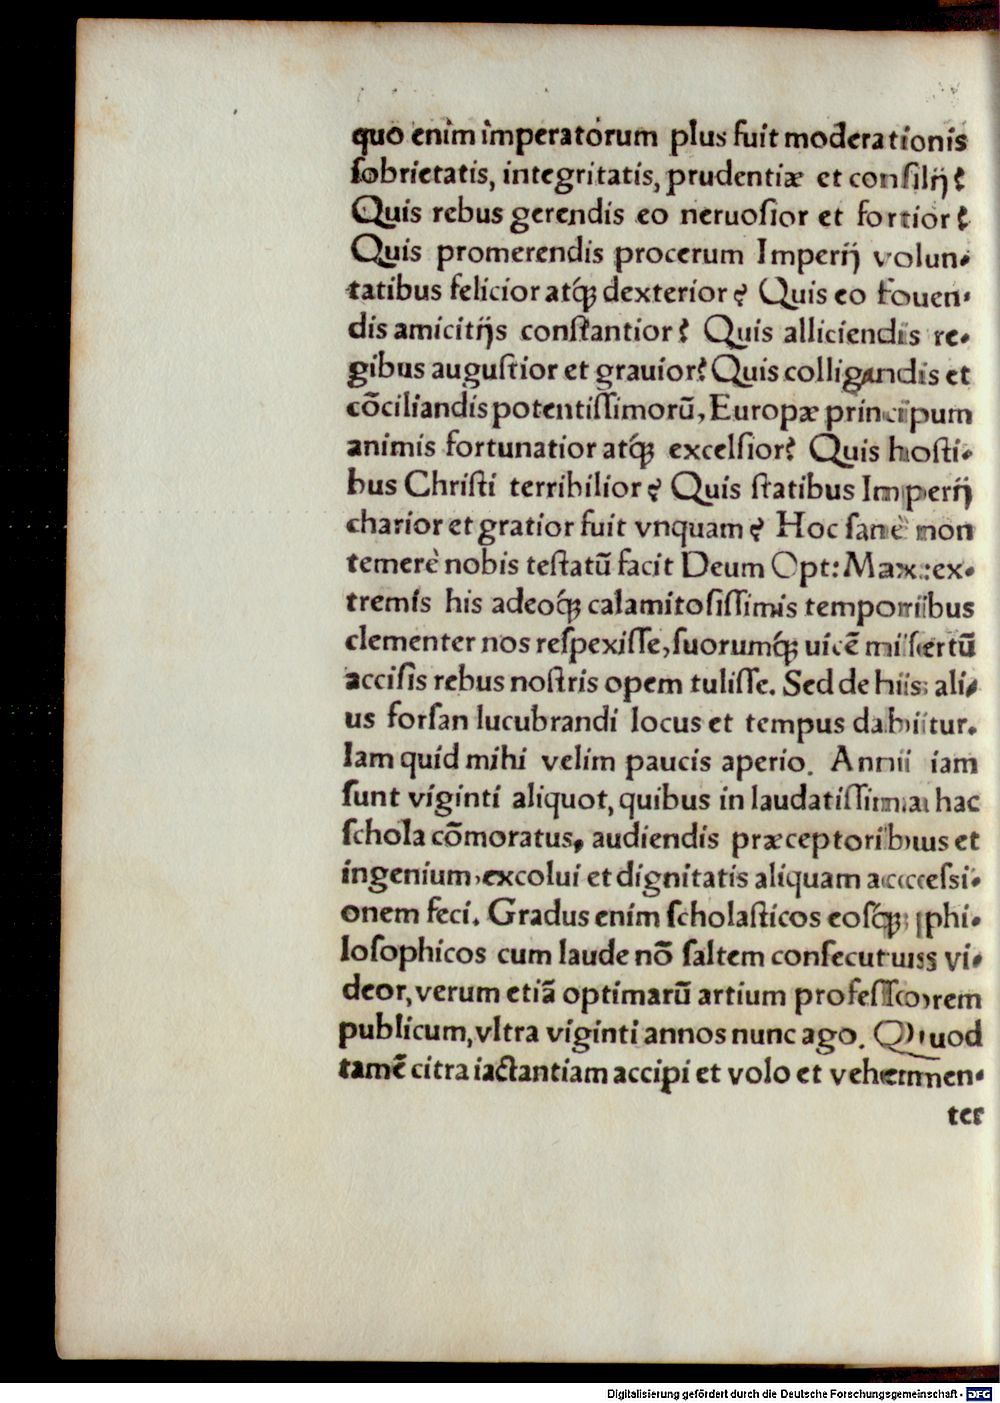 quo enim imperatorum plus fuit moderationis
ſobrietatis, integritatis, prudentiæ et conſilij?
Quis rebus gerendis eo neruoſior et fortior?
Quis promerendis procerum Imperij volun-
tatibus felicior atq́ꝫ dexterior? Quis eo fouen-
dis amicitijs conſtantior? Quis alliciendis re-
gibus auguſtior et grauior? Quis colligandis et
cōciliandis potentiſſimorū, Europæ principum
animis fortunatior atq́ꝫ excelſior? Quis hoſti-
bus Chriſti terribilior? Quis ſtatibus Imperij
charior et gratior fuit vnquam? Hoc ſanè non
temerè nobis teſtatū facit Deum Opt: Max: ex-
tremis his adeoq́ꝫ calamitoſiſſimis temporibus
clementer nos reſpexiſſe, ſuorumq́ꝫ uicē miſertū
acciſis rebus noſtris opem tuliſſe. Sed de hiis ali-
us forſan lucubrandi locus et tempus dabitur.
Iam quid mihi velim paucis aperio. Anni iam
ſunt viginti aliquot, quibus in laudatiſſima hac
ſchola cōmoratus, audiendis præceptoribus et
ingenium, excolui et dignitatis aliquam acceſsi-
onem feci. Gradus enim ſcholaſticos eoſq́ꝫ phi-
loſophicos cum laude nō ſaltem conſecutus vi-
deor, verum etiā optimarū artium profeſſorem
publicum, vltra viginti annos nunc ago. Quod
tamē citra iactantiam accipi et volo et vehemen-
ter
Digitalisierung gefördert durch die Deutsche Forschungsgemeinschaft - DFG